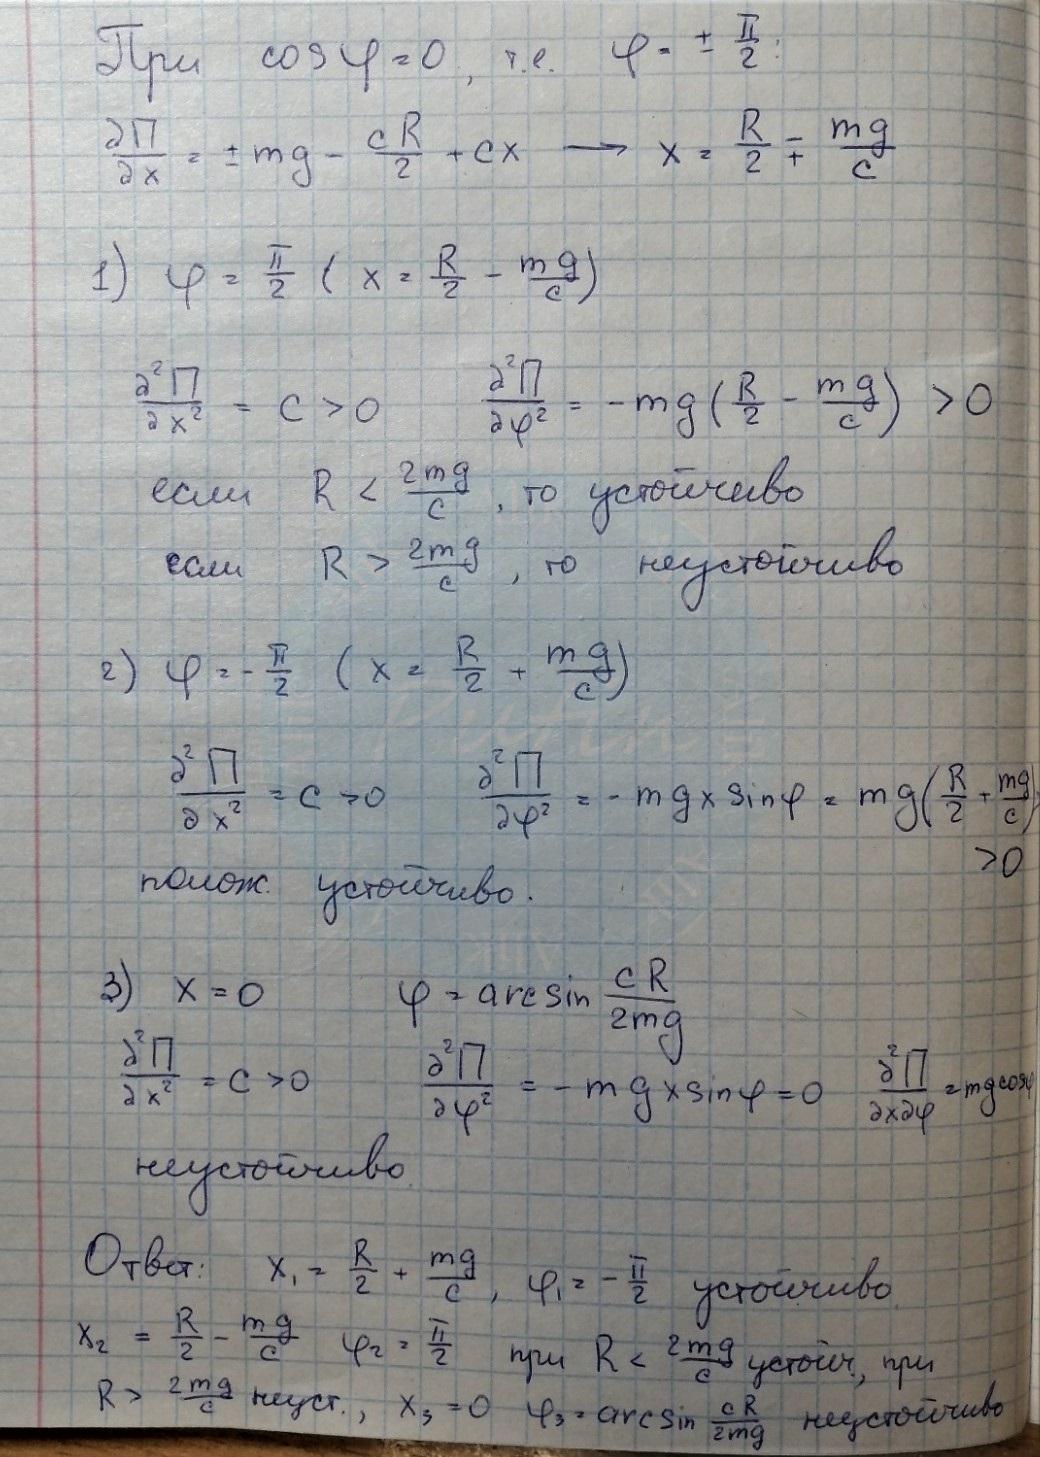 При cosφ = 0, т.е. φ = ± π/2:
∂П/∂x = ± mg - cR/2 + cx → x = R/2 ∓ mg/c
1) φ = π/2 ( x = R/2 - mg/c )
∂²П/∂x² = c > 0 ∂²П/∂φ² = - mg ( R/2 - mg/c ) > 0
если R < 2mg/c , то устойчиво
если R > 2mg/c , то неустойчиво
2) φ = - π/2 ( x = R/2 + mg/c )
∂²П/∂x² = c > 0 ∂²П/∂φ² = - mg x sinφ = mg ( R/2 + mg/c )
> 0
полож. устойчиво.
3) x = 0 φ = arcsin cR/2mg
∂²П/∂x² = c > 0 ∂²П/∂φ² = - mg x sinφ = 0 ∂²П/∂x∂φ = mg cosφ
неустойчиво
Ответ: x₁ = R/2 + mg/c , φ₁ = - π/2 устойчиво
x₂ = R/2 - mg/c φ₂ = π/2 при R < 2mg/c устойч., при
R > 2mg/c неуст., x₃ = 0 φ₃ = arcsin cR/2mg неустойчиво